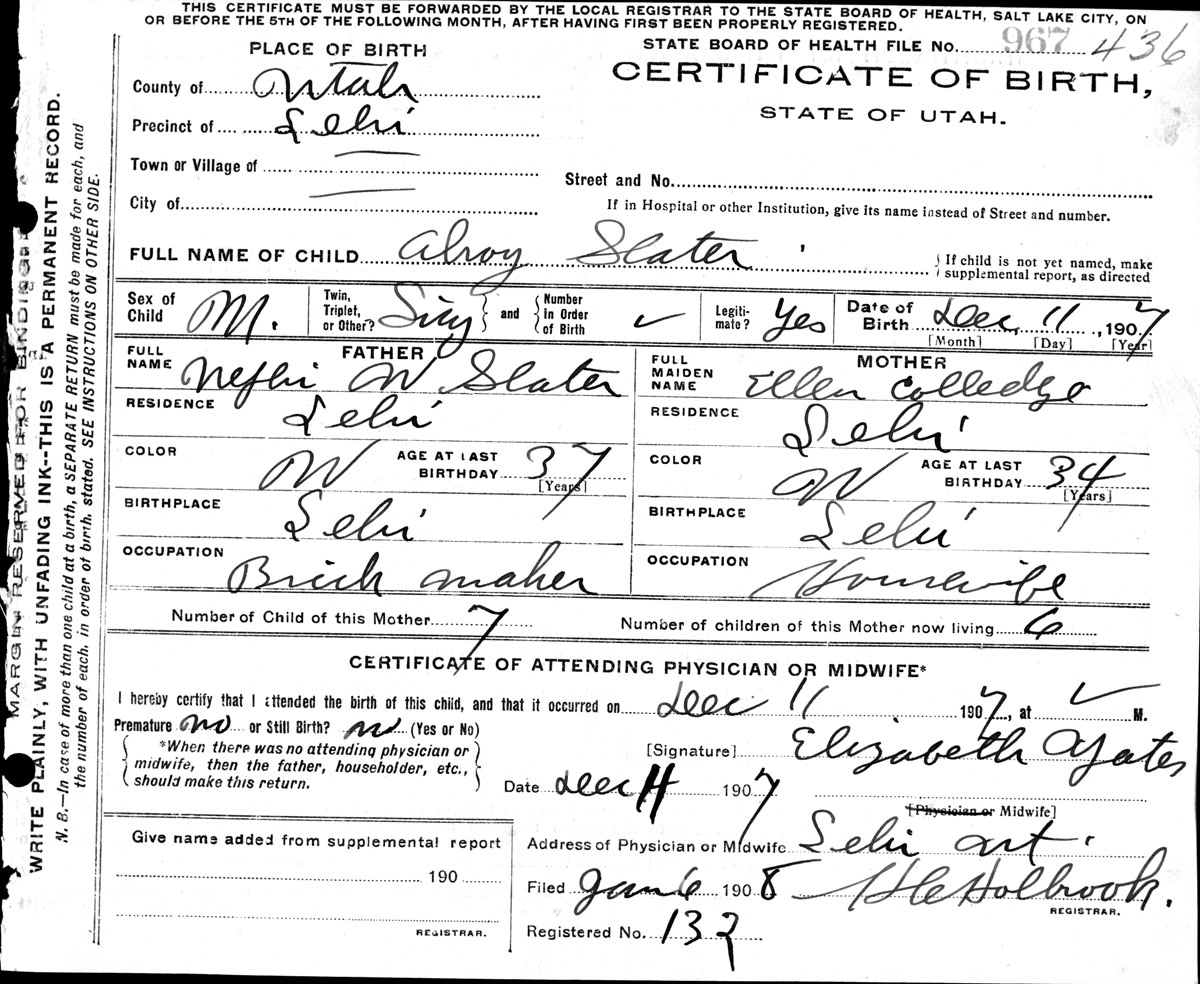 THIS CERTIFICATE MUST BE FORWARDED BY THE LOCAL REGISTRAR TO THE STATE BOARD OF HEALTH, SALT LAKE CITY, ON
OR BEFORE THE 5TH OF THE FOLLOWING MONTH, AFTER HAVING FIRST BEEN PROPERLY REGISTERED.
STATE BOARD OF HEALTH FILE No. 967 436
CERTIFICATE OF BIRTH,
STATE OF UTAH.
PLACE OF BIRTH
County of Utah
Precinct of Lehi
Town or Village of —
City of —
Street and No.
If in Hospital or other Institution, give its name instead of Street and number.
FULL NAME OF CHILD Alroy Slater
{ If child is not yet named, make
supplemental report, as directed
Sex of Child M.
Twin, Triplet, or Other? Sing } and { Number in Order of Birth ✓
Legitimate? Yes
Date of Birth Dec 11, 1907
[Month] [Day] [Year]
FATHER
FULL NAME Nephi W Slater
RESIDENCE Lehi
COLOR W AGE AT LAST BIRTHDAY 37
[Years]
BIRTHPLACE Lehi
OCCUPATION Brick maker
MOTHER
FULL MAIDEN NAME Ellen Colledge
RESIDENCE Lehi
COLOR W AGE AT LAST BIRTHDAY 34
[Years]
BIRTHPLACE Lehi
OCCUPATION Housewife
Number of Child of this Mother 7 Number of children of this Mother now living 6
CERTIFICATE OF ATTENDING PHYSICIAN OR MIDWIFE*
I hereby certify that I attended the birth of this child, and that it occurred on Dec 11 1907, at ✓ M.
Premature no or Still Birth? no (Yes or No)
{ *When there was no attending physician or
midwife, then the father, householder, etc.,
should make this return. }
[Signature] Elizabeth Yates
Date Dec 11 1907
[Physician or Midwife]
Address of Physician or Midwife Lehi ut
Filed Jan 6 1908 H C Holbrook.
REGISTRAR.
Registered No. 132
Give name added from supplemental report
190
REGISTRAR.
MARGIN RESERVED FOR BINDING
WRITE PLAINLY, WITH UNFADING INK--THIS IS A PERMANENT RECORD.
N. B.—In case of more than one child at a birth, a SEPARATE RETURN must be made for each, and
the number of each, in order of birth, stated. SEE INSTRUCTIONS ON OTHER SIDE.